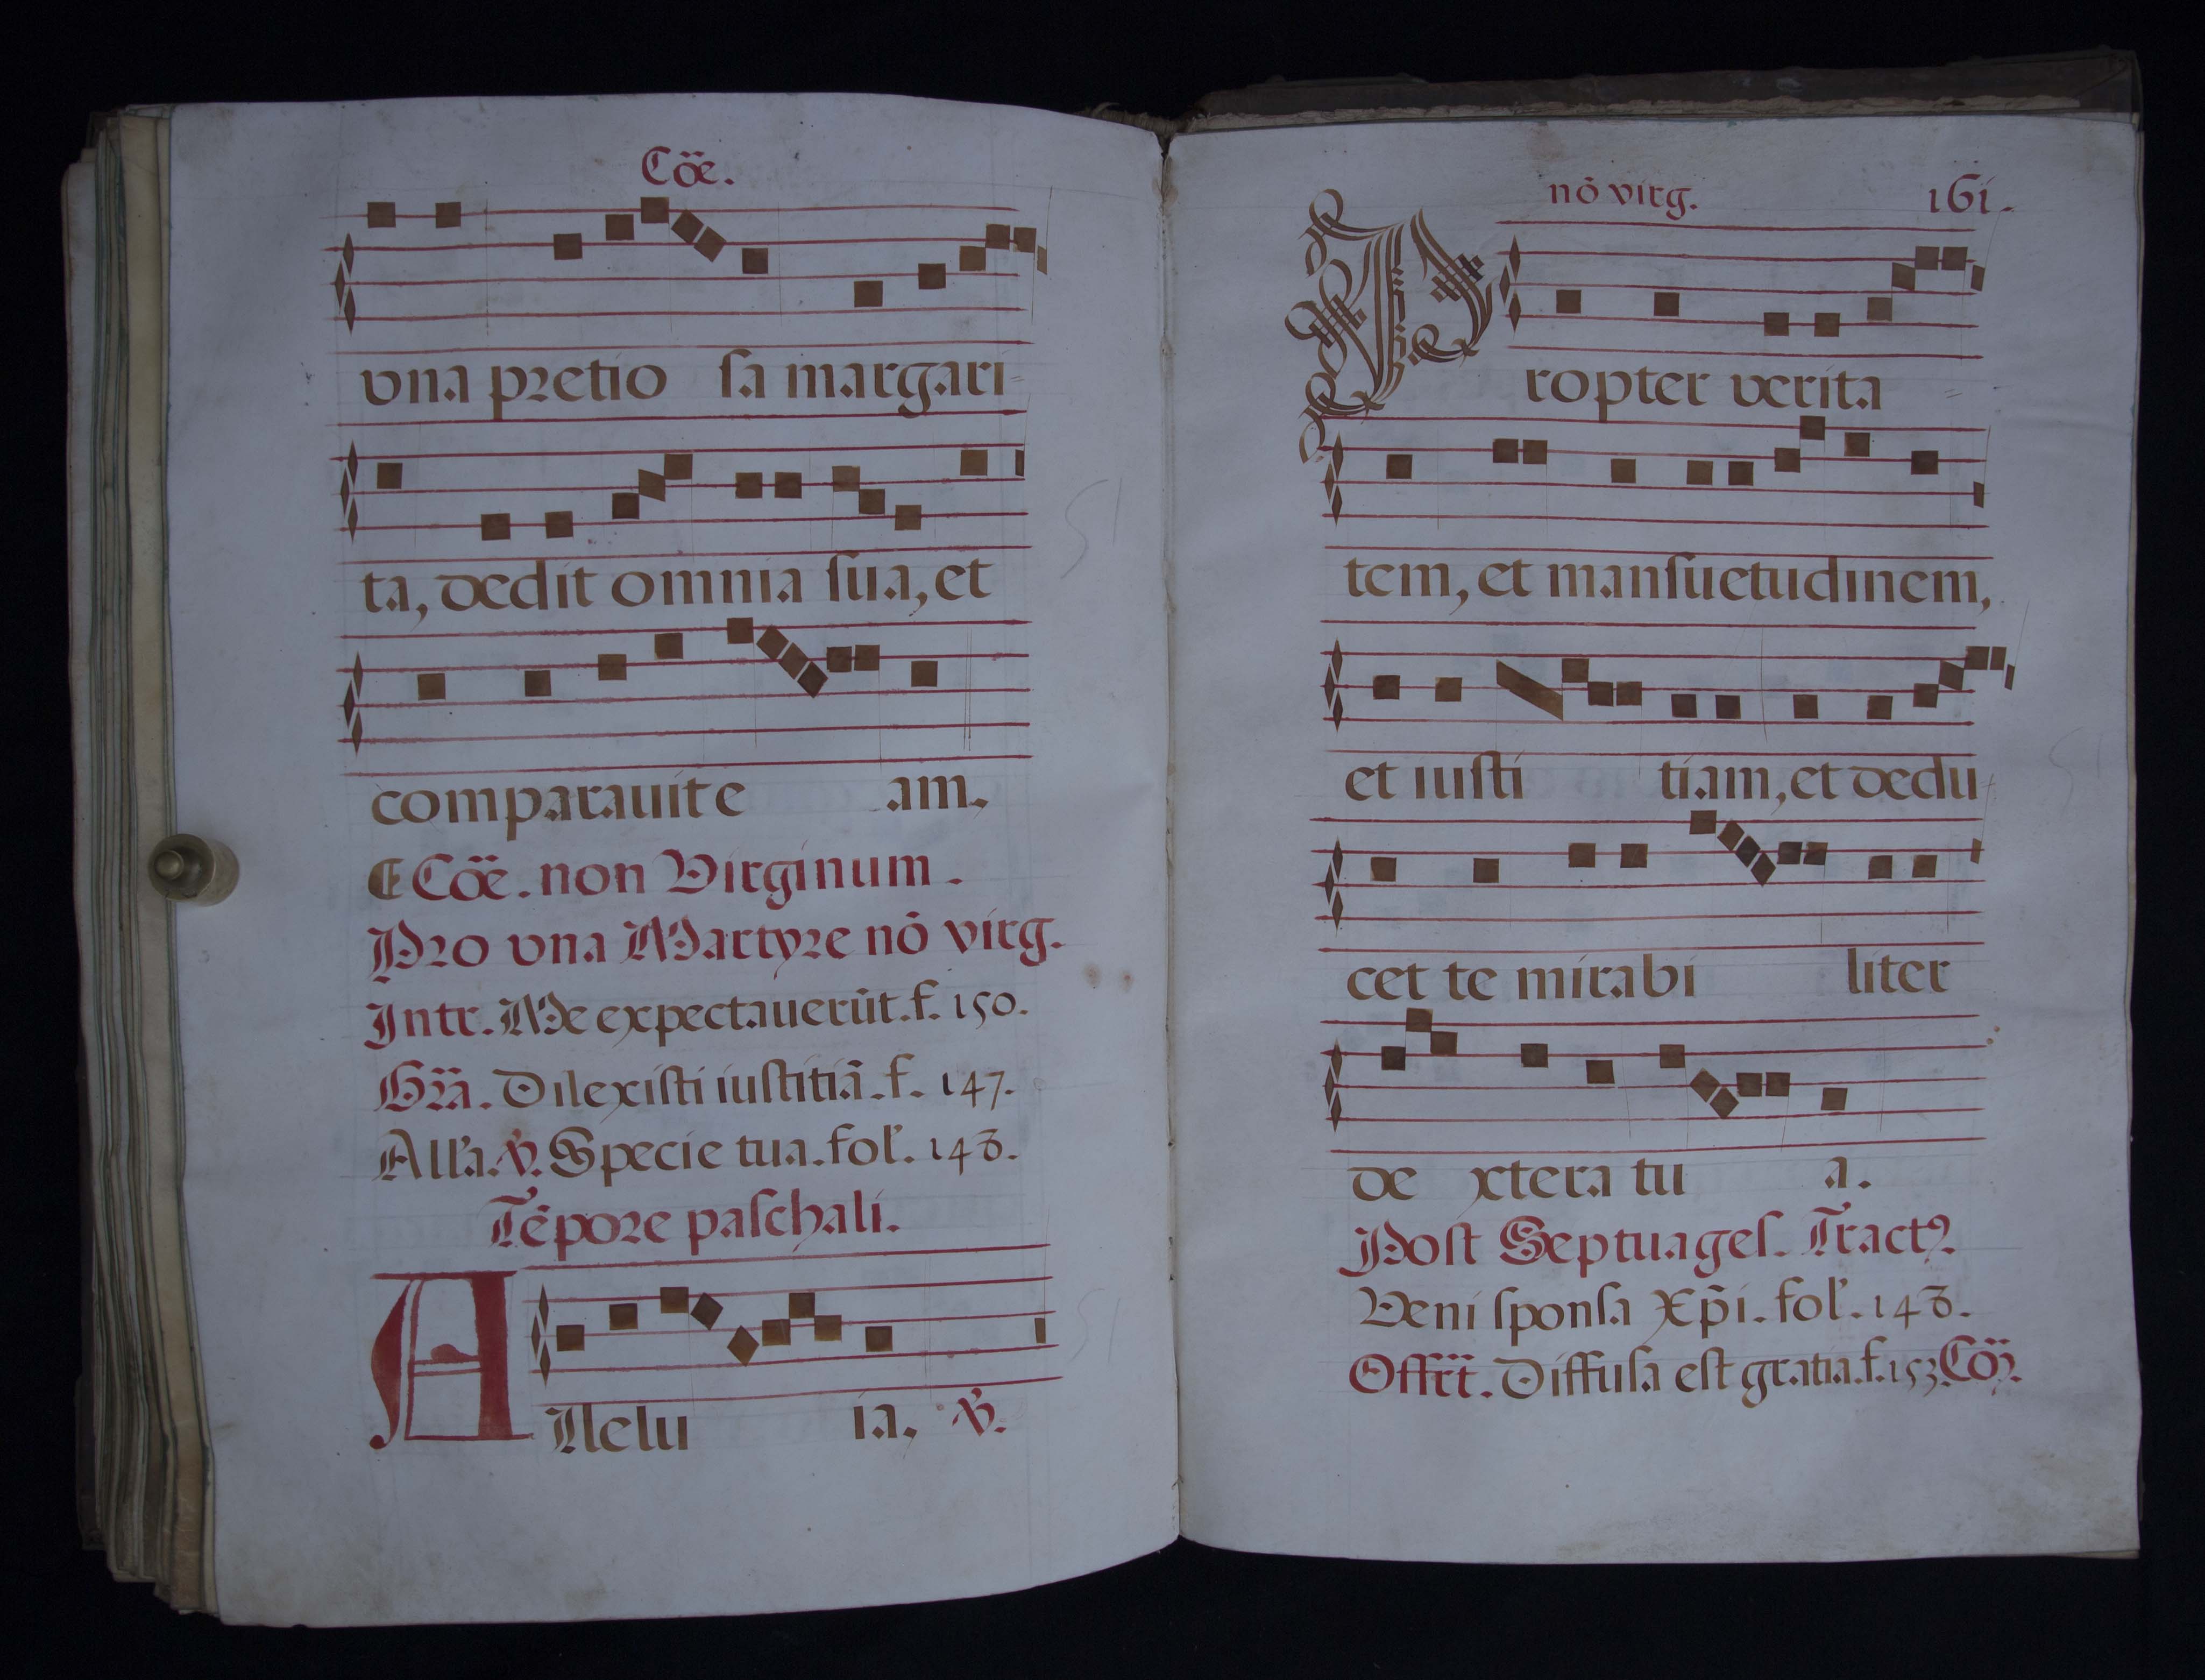 Cöe.
vna pretio ſa margari-
ta, dedit omnia ſua, et
comparauit e am.
Cöe. non Virginum.
Pro vna Martyre nō virg.
Intr. Me expectauerūt. f. 150.
Gra. Dilexiſti iuſtitiā. f. 147.
All'a. ℣. Specie tua. fol. 148.
Tēpore paſchali.
Allelu ia, ℣.
nō virg. 161.
Propter verita-
tem, et manſuetudinem,
et iuſti tiam, et dedu-
cet te mirabi liter
de xtera tu a.
Poſt Septuageſ. Tractꝰ.
Veni ſponſa Xp̄i. fol. 148.
Offrt. Diffuſa eſt gratia. f. 153. Cō.